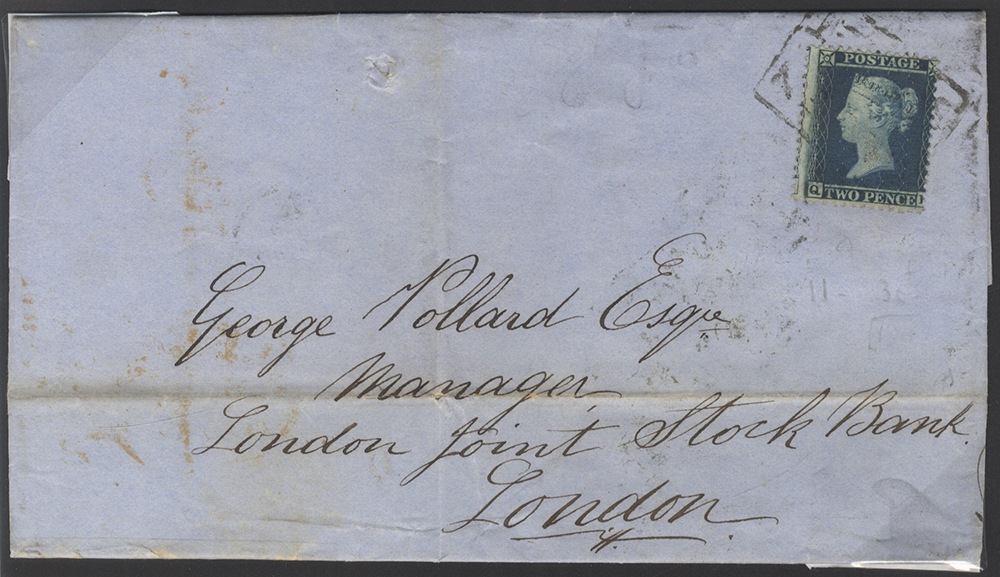 POSTAGE
Q
TWO PENCE
George Pollard Esqre
Manager
London Joint Stock Bank.
London
11-